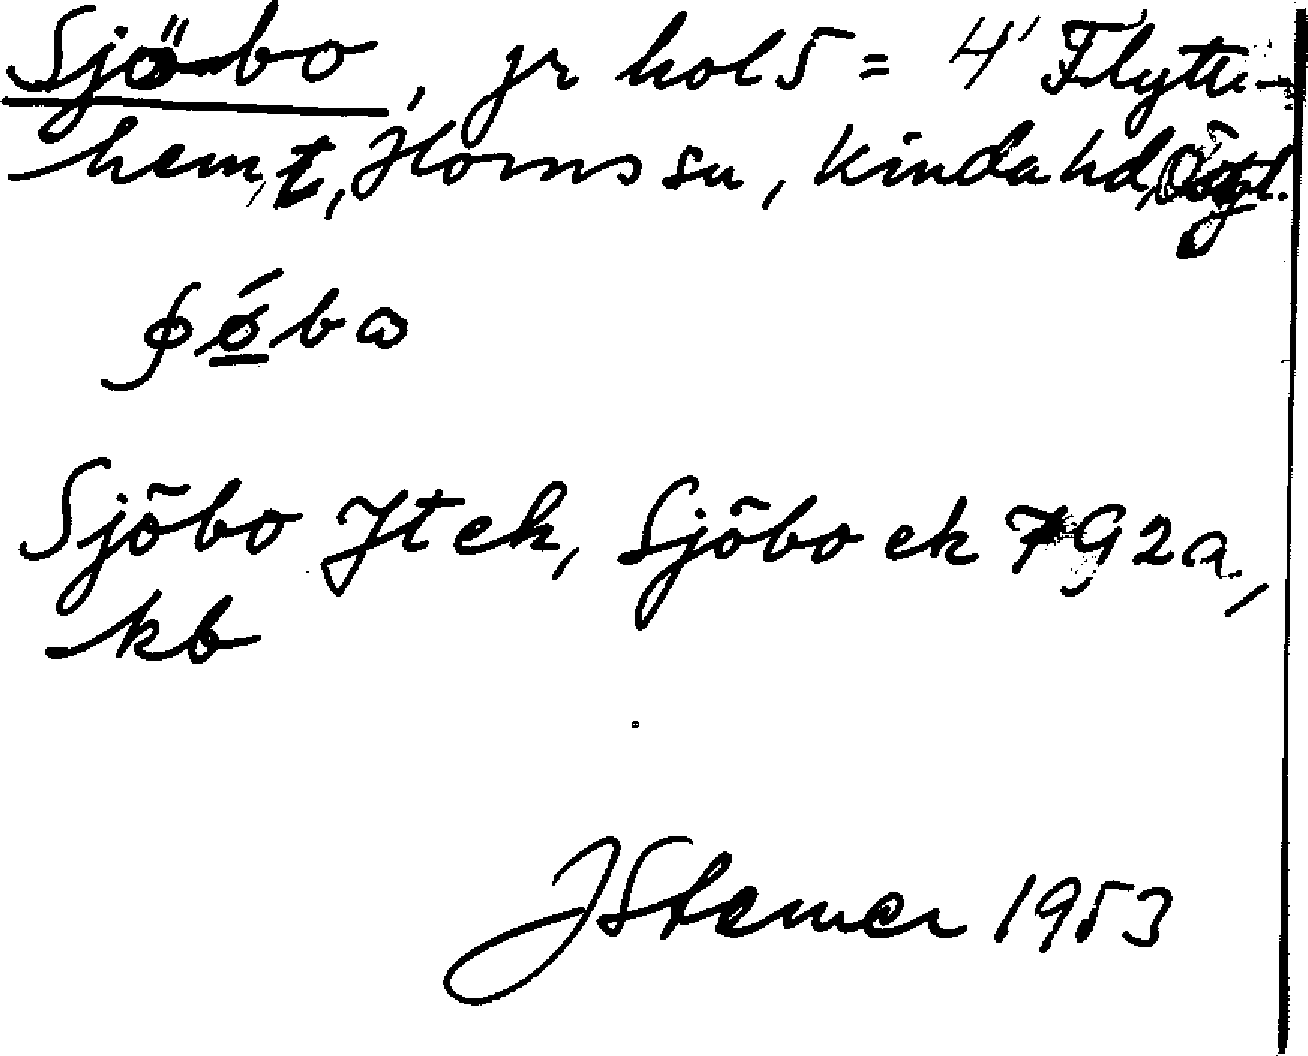 Sjöbo, jr hol 5 = 4' Flytte-
hem, t, Horns sn, Kinda hd, Ögl.
Sjöbo Jt ek, Sjöbo ek 7 G 2 a,
kb
J Stemer 1953